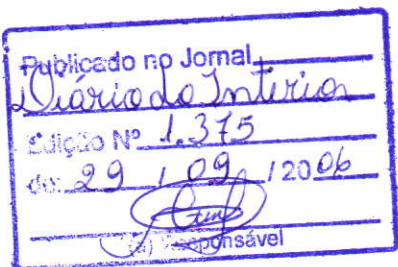 Publicado no Jornal
Diário do Interior
Edição Nº 1.375
de: 29 / 09 / 2006
Responsável